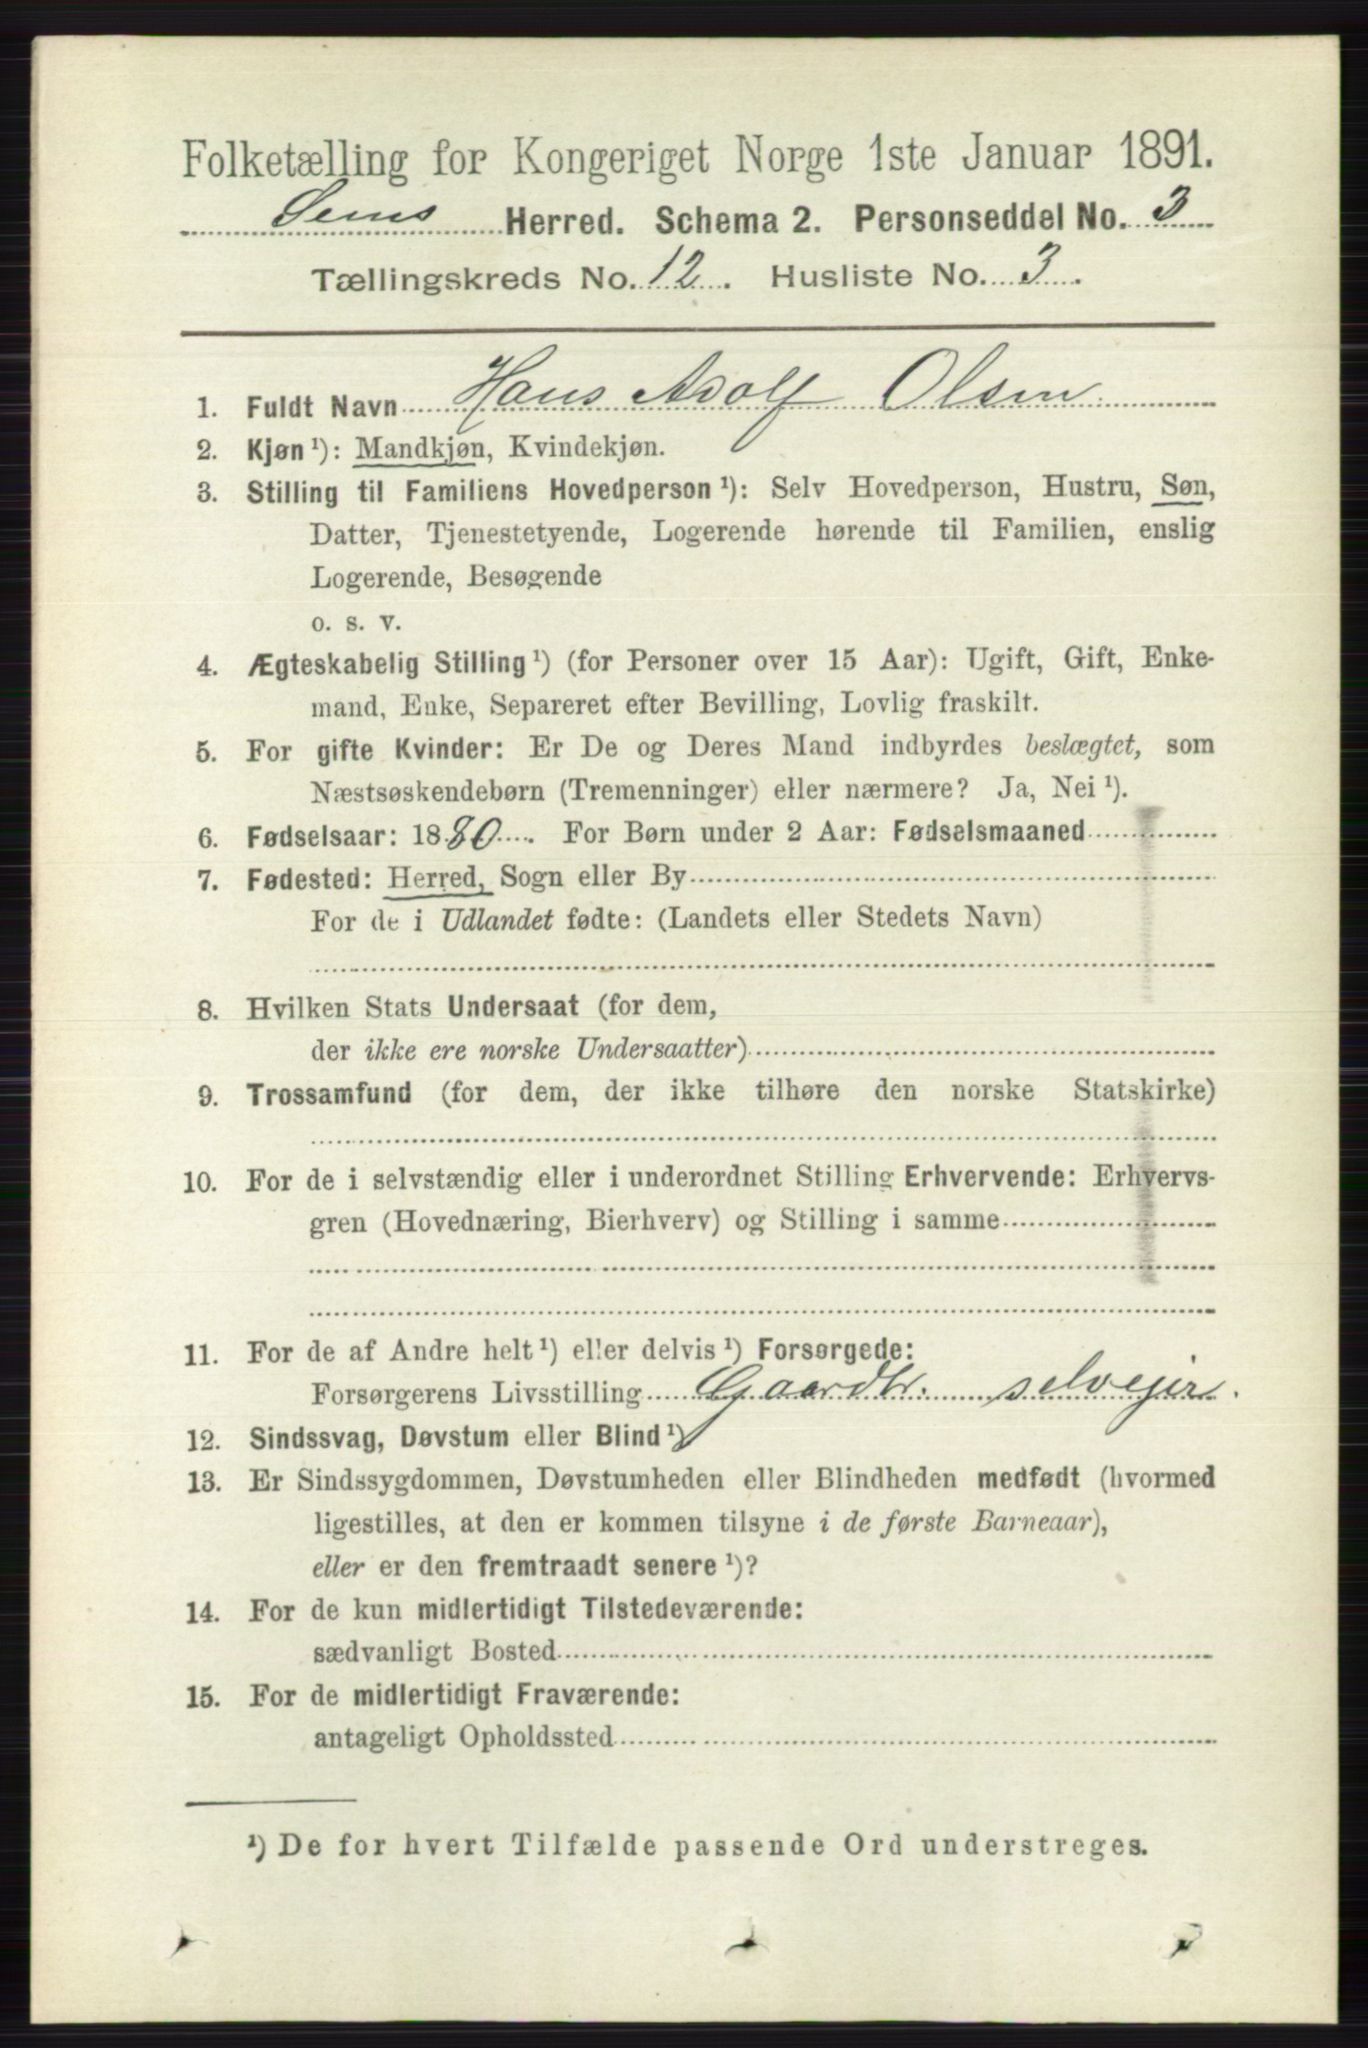 Folketælling for Kongeriget Norge 1ste Januar 1891.
Sems Herred. Schema 2. Personseddel No. 3
Tællingskreds No. 12. Husliste No. 3.
1. Fuldt Navn Hans Adolf Olsen
2. Kjøn ¹): Mandkjøn, Kvindekjøn.
3. Stilling til Familiens Hovedperson ¹): Selv Hovedperson, Hustru, Søn,
Datter, Tjenestetyende, Logerende hørende til Familien, enslig
Logerende, Besøgende
o. s. v.
4. Ægteskabelig Stilling ¹) (for Personer over 15 Aar): Ugift, Gift, Enke-
mand, Enke, Separeret efter Bevilling, Lovlig fraskilt.
5. For gifte Kvinder: Er De og Deres Mand indbyrdes beslægtet, som
Næstsøskendebørn (Tremenninger) eller nærmere? Ja, Nei ¹).
6. Fødselsaar: 1880. For Børn under 2 Aar: Fødselsmaaned
7. Fødested: Herred, Sogn eller By
For de i Udlandet fødte: (Landets eller Stedets Navn)
8. Hvilken Stats Undersaat (for dem,
der ikke ere norske Undersaatter)
9. Trossamfund (for dem, der ikke tilhøre den norske Statskirke)
10. For de i selvstændig eller i underordnet Stilling Erhvervende: Erhvervs-
gren (Hovednæring, Bierhverv) og Stilling i samme
11. For de af Andre helt ¹) eller delvis ¹) Forsørgede:
Forsørgerens Livsstilling Gaardbr. selveier.
12. Sindssvag, Døvstum eller Blind ¹)
13. Er Sindssygdommen, Døvstumheden eller Blindheden medfødt (hvormed
ligestilles, at den er kommen tilsyne i de første Barneaar),
eller er den fremtraadt senere ¹)?
14. For de kun midlertidigt Tilstedeværende:
sædvanligt Bosted
15. For de midlertidigt Fraværende:
antageligt Opholdssted
¹) De for hvert Tilfælde passende Ord understreges.